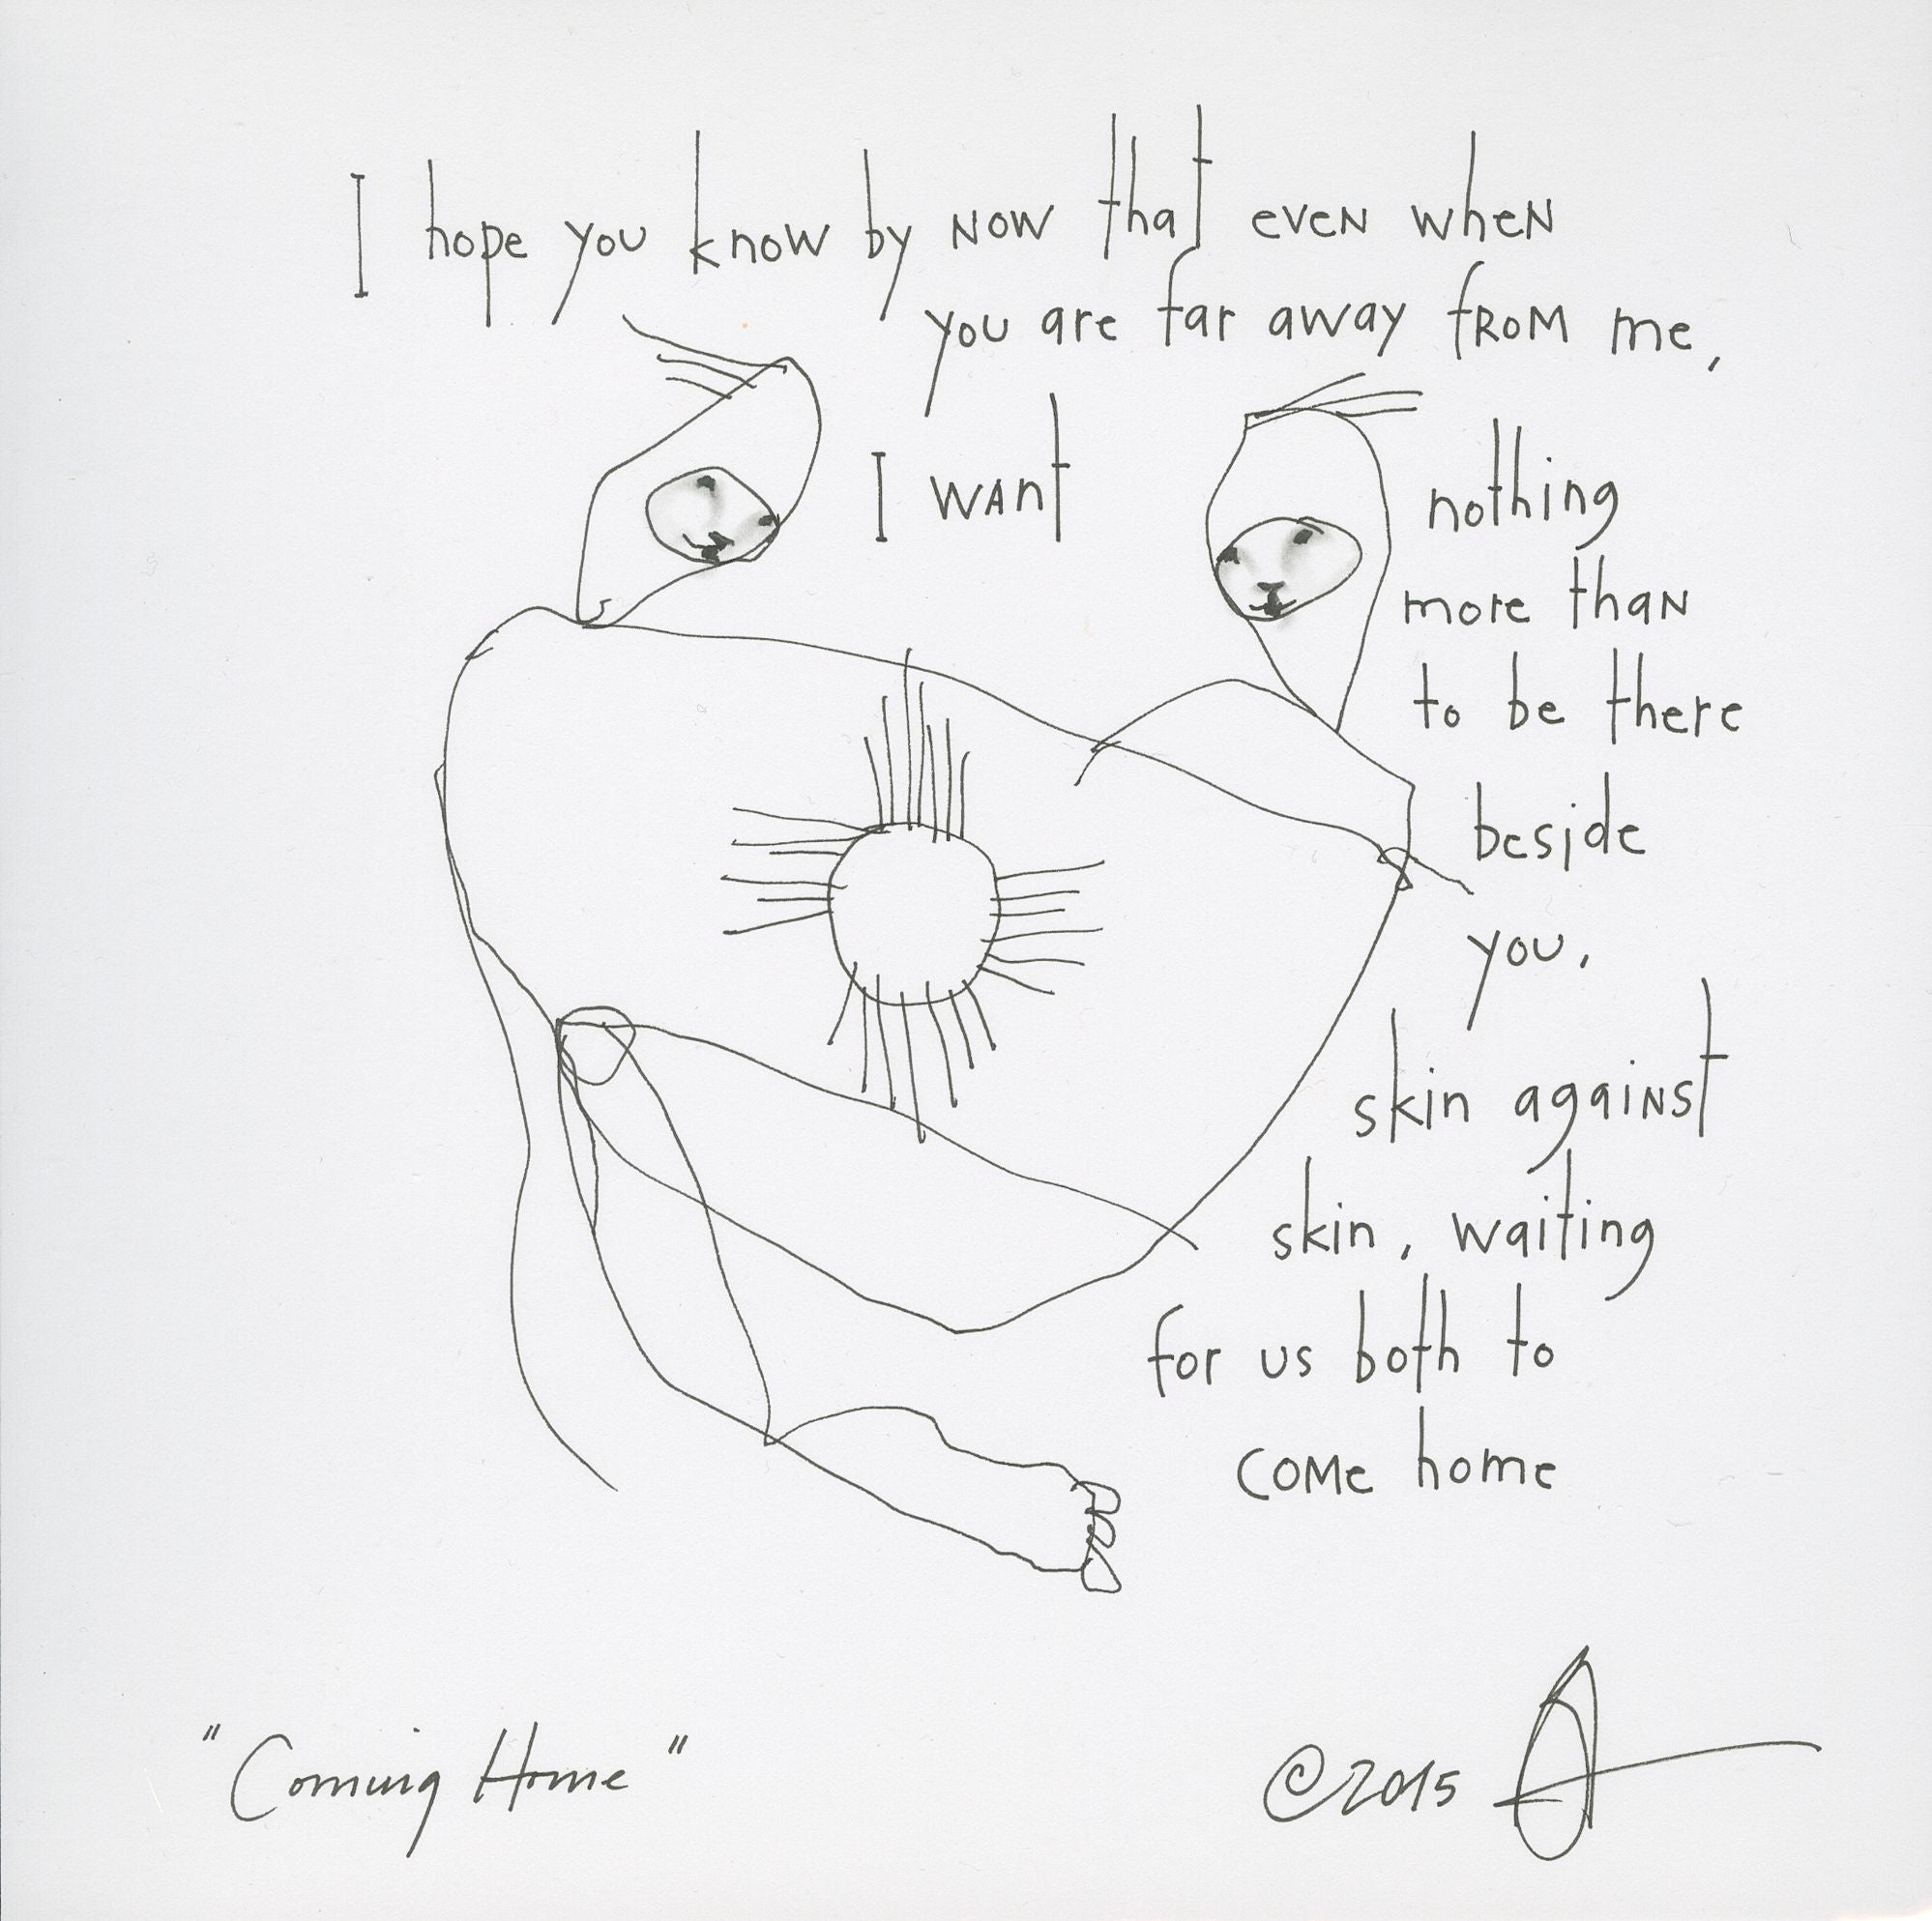 I hope you know by now that even when
you are far away from me,
I want nothing
more than
to be there
beside
you,
skin against
skin, waiting
for us both to
come home
"Coming Home"
©2015